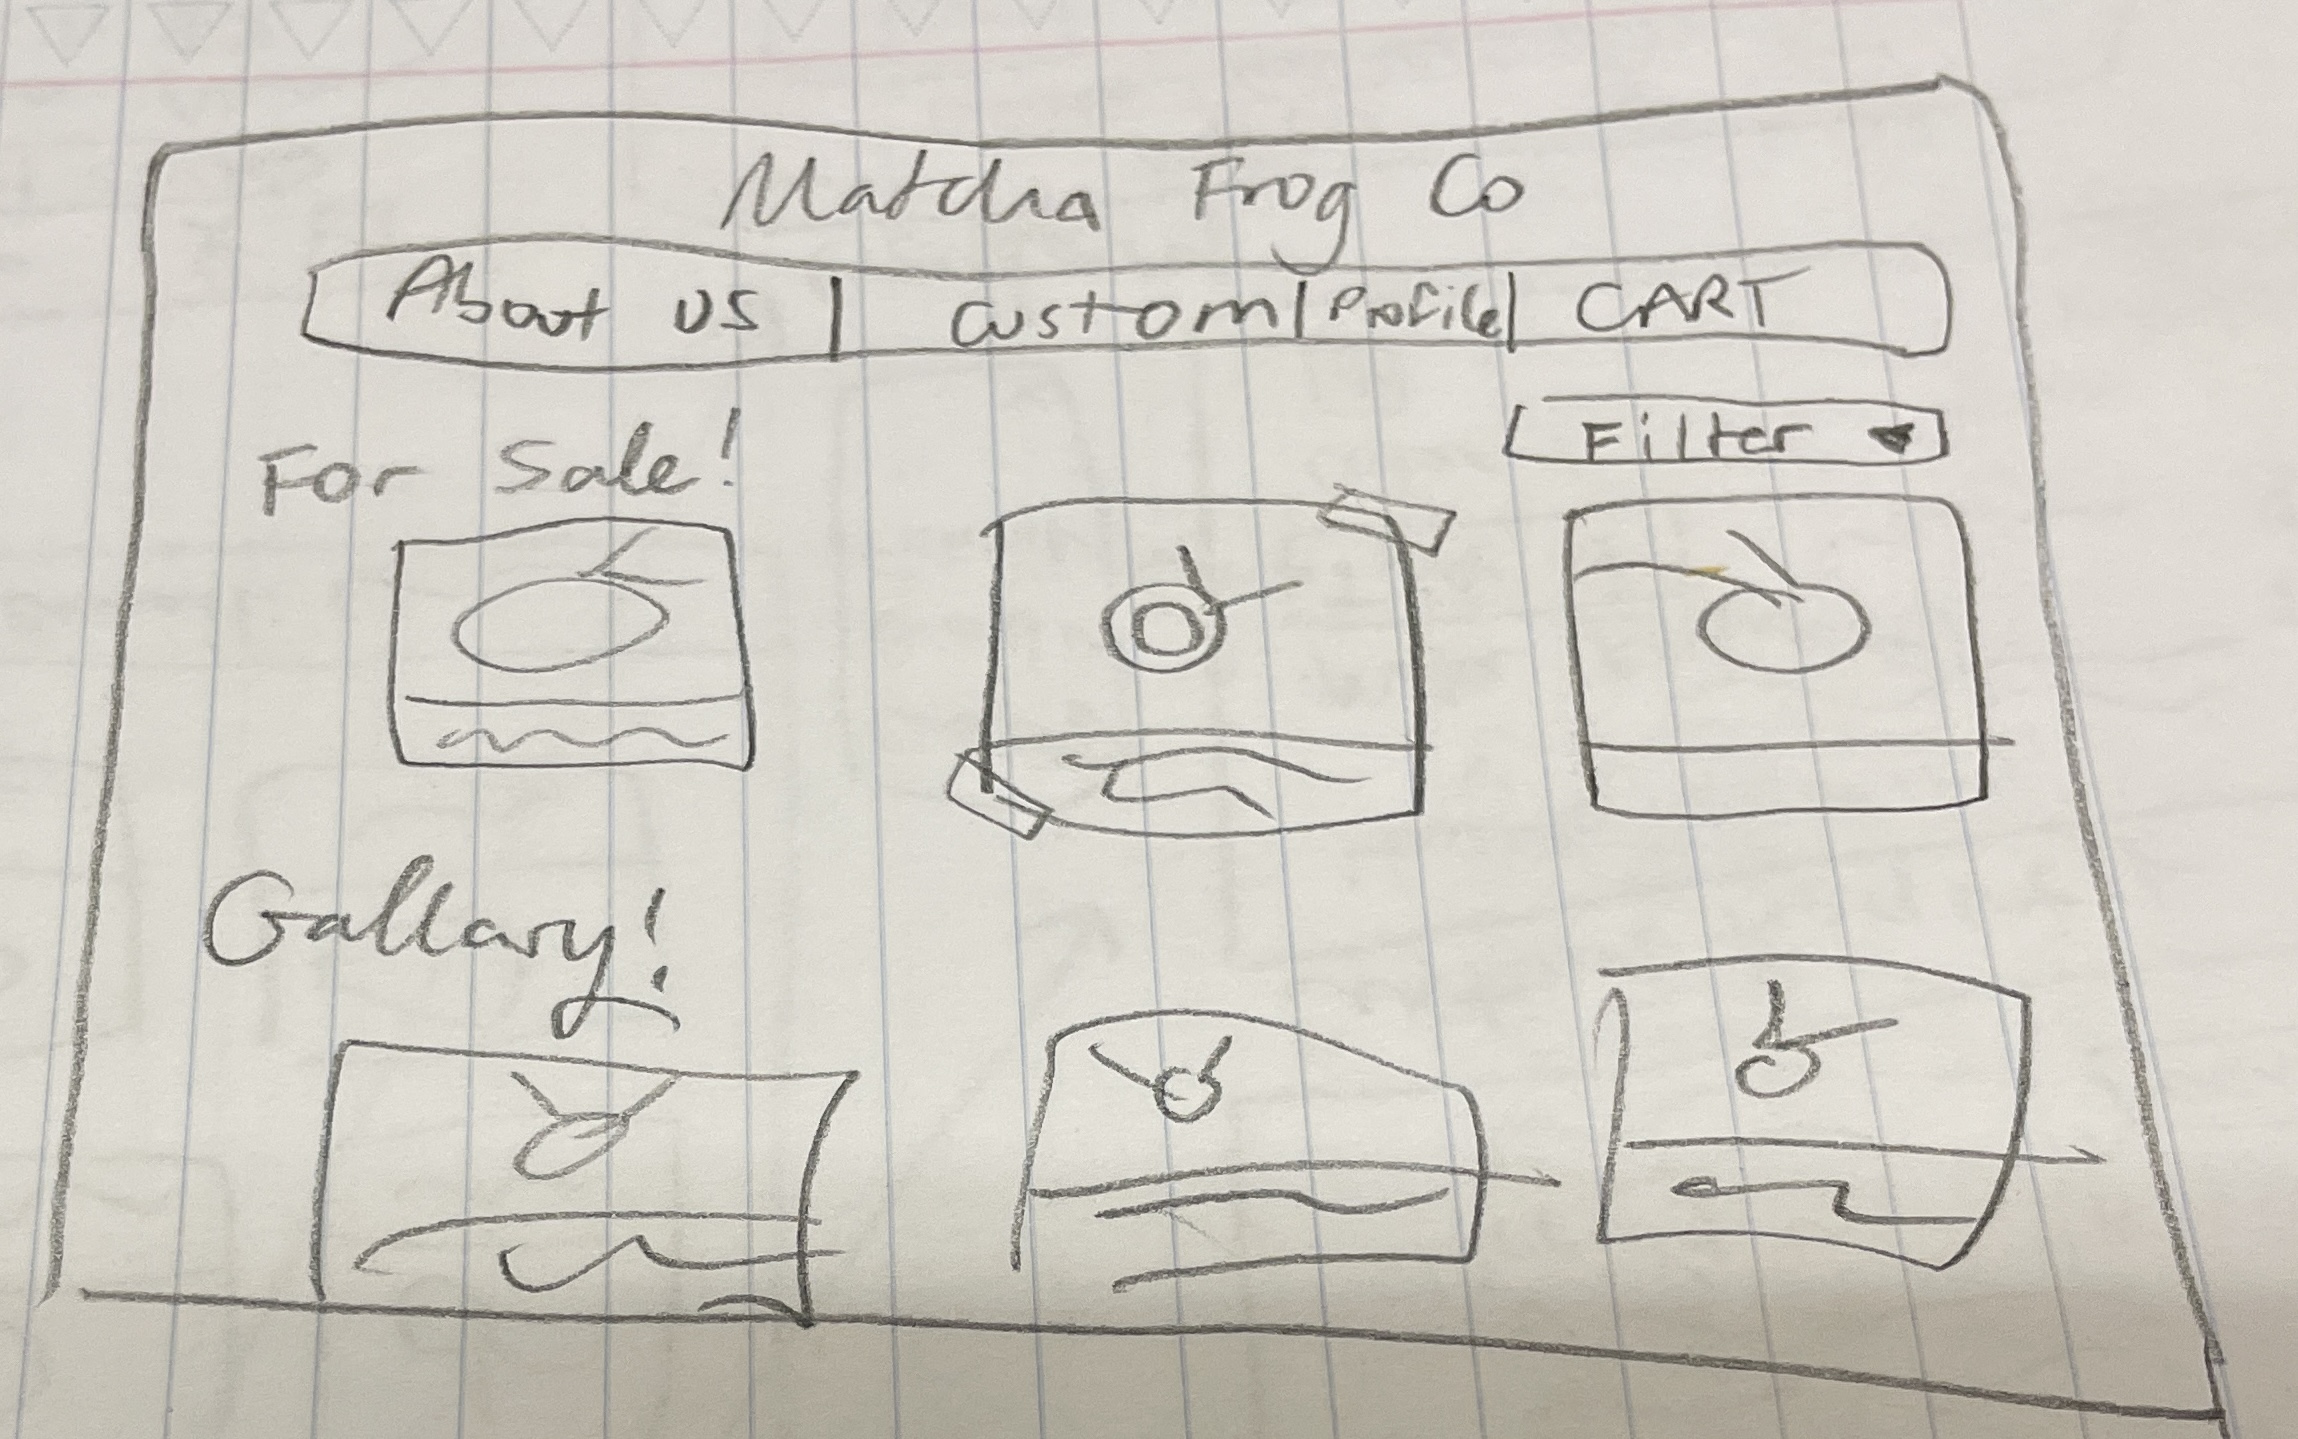 Matcha Frog Co
About us | custom | Profile | CART
Filter
For Sale!
Gallary!